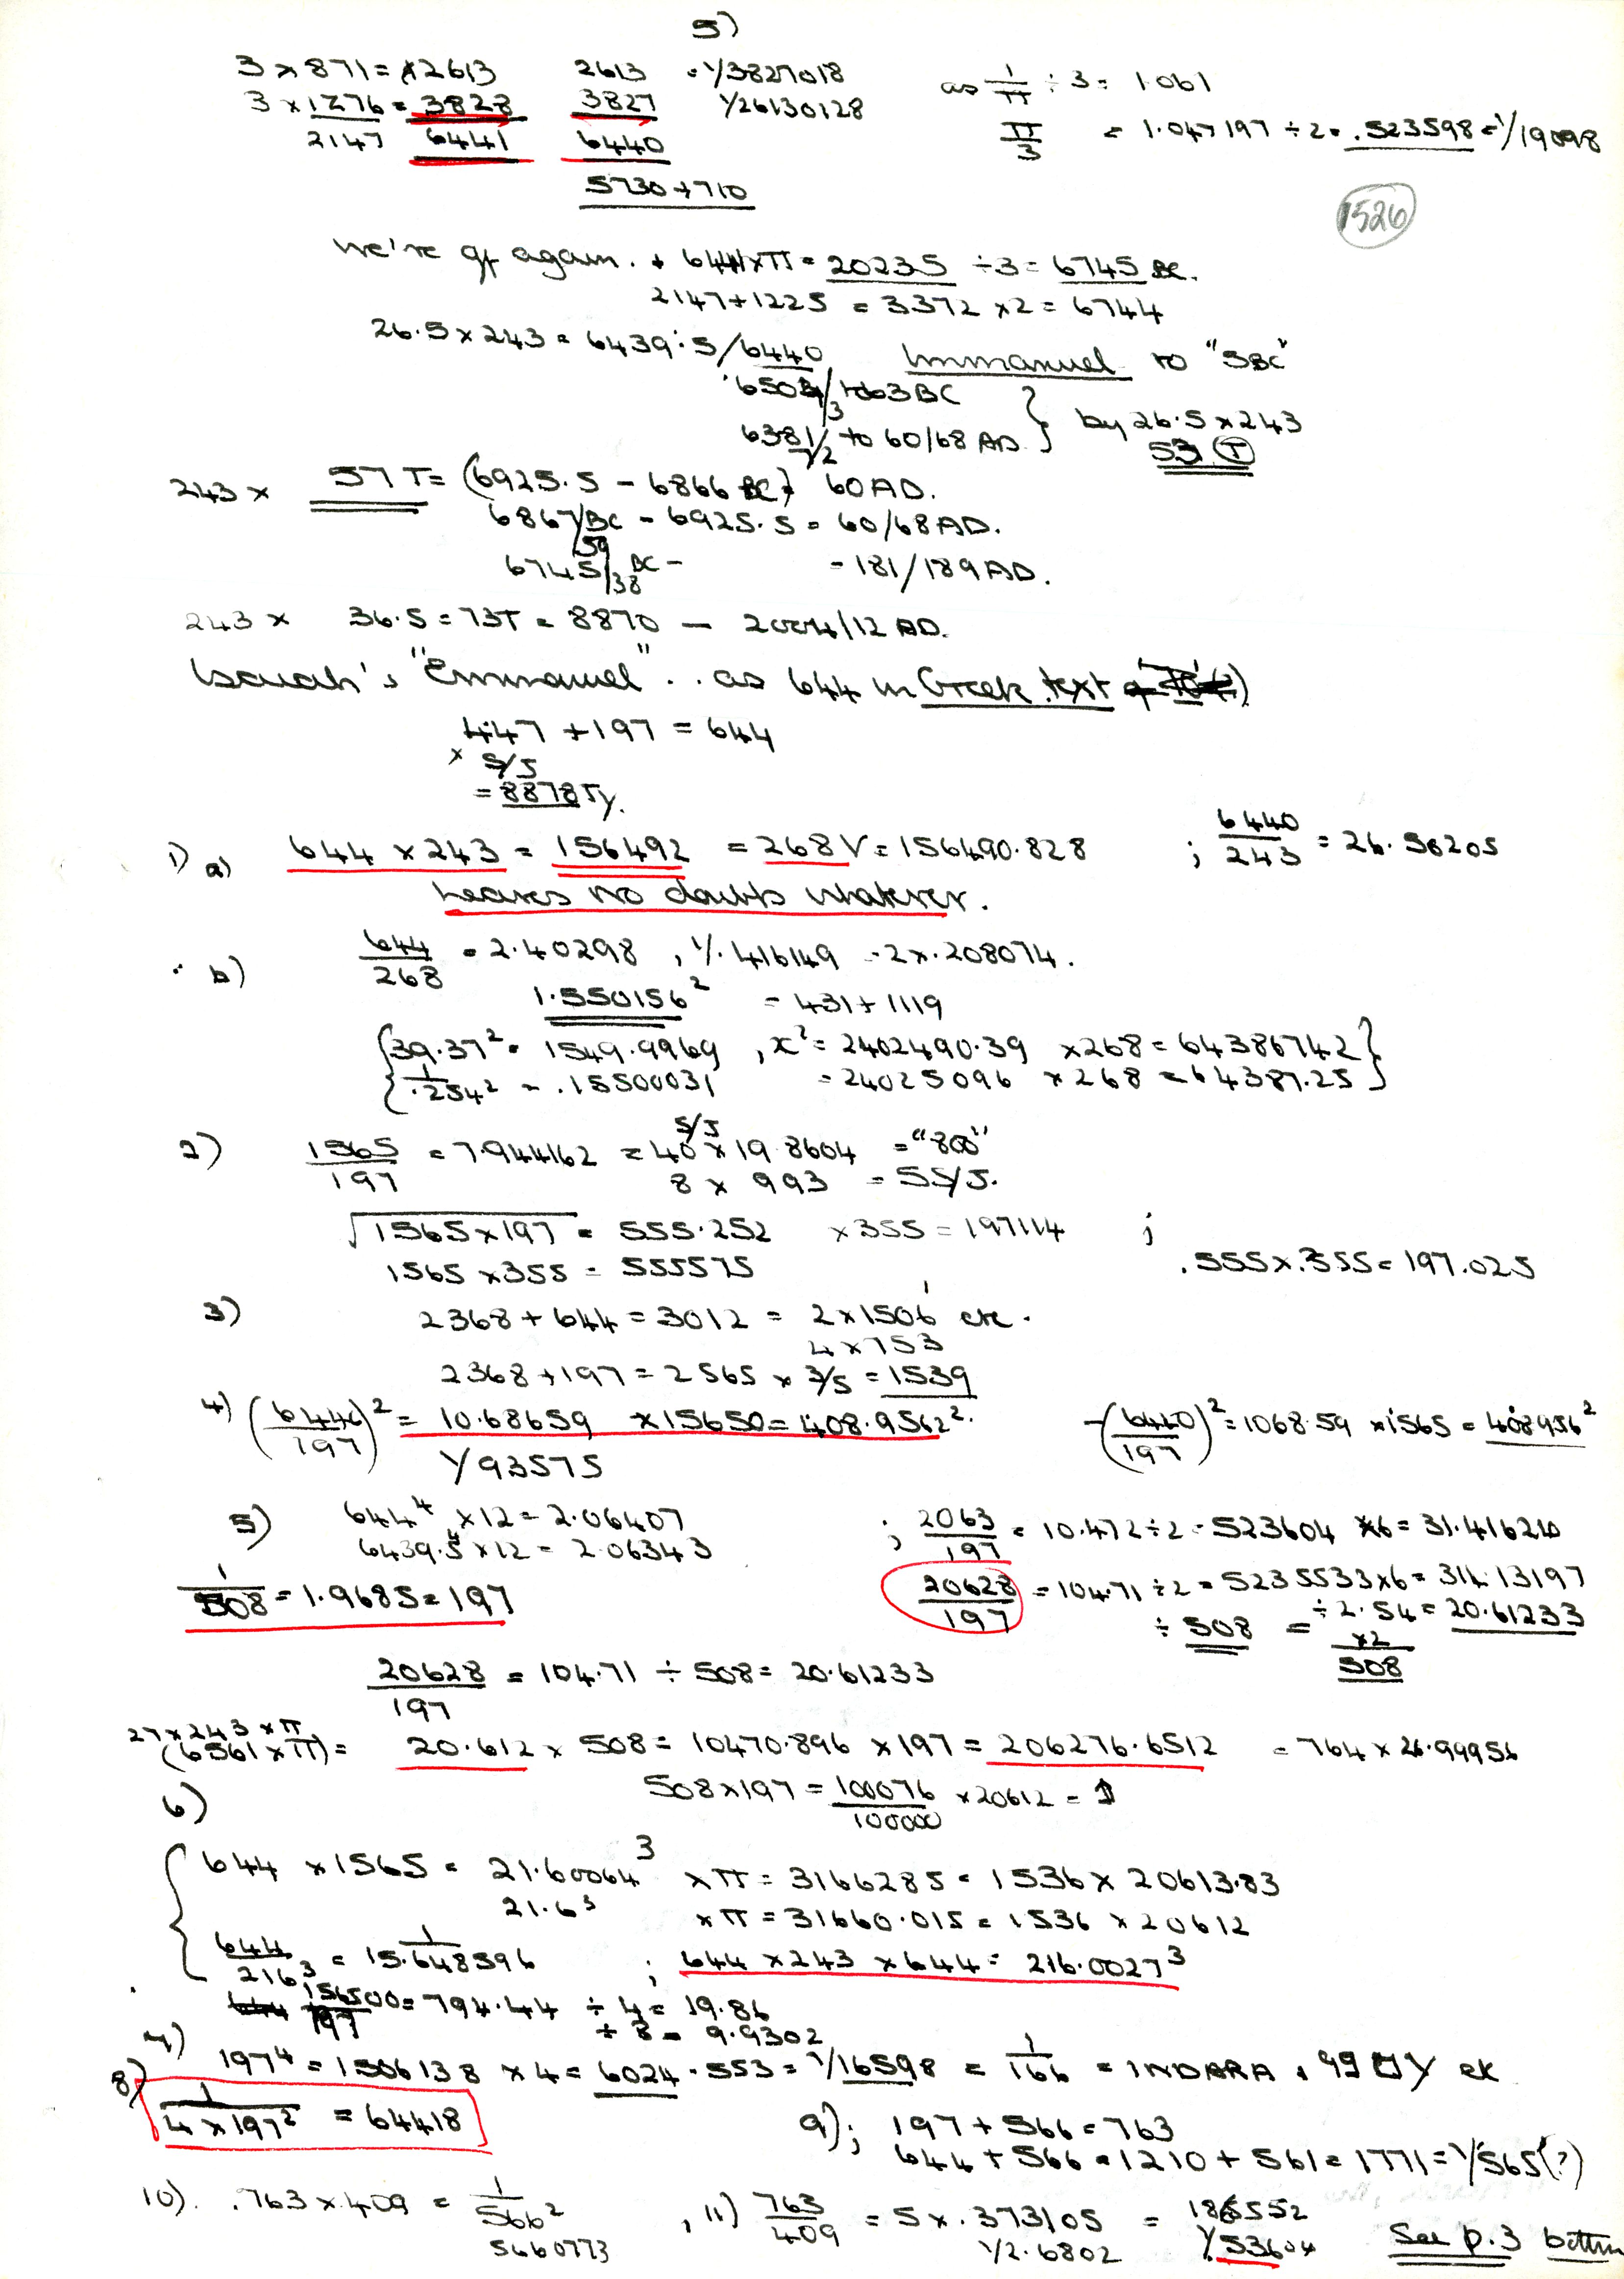 5)
3 × 871 = 2613   2613 = 1/3827018   as 1/π ÷ 3 = 1.061
3 × 1276 = 3828   3827   1/26130128   π/3 = 1.047197 ÷ 2 = .523598 = 1/19098
2147   6441   6440
5730 + 710
1526
We're off again. + 6441 × π = 20235 ÷ 3 = 6745 BC.
2147 + 1225 = 3372 × 2 = 6744
26.5 × 243 = 6439.5/6440   Immanuel to "5BC"
6503/ to 63BC
6381/72 to 60/68 AD } by 26.5 × 243
53 T
243 × 57T = (6925.5 – 6866 BC) 60AD.
6867/59 BC – 6925.5 = 60/68AD.
6745/38 BC – – 181/189AD.
243 × 36.5 = 73T = 8870 — 2004/12 AD.
Isaiah's "Emmanuel" .. as 644 in Greek text
447 + 197 = 644
× S/J
= 8878 Jy.
1) a) 644 × 243 = 156492 = 268 V = 156490.828 ; 6440/243 = 26.50205
Leaves no doubts whatever.
b) 644/268 = 2.40298, 1/.416149 = 2 × .208074.
1.550156² = 431 + 1119
{39.37² = 1549.9969, x² = 2402490.39 × 268 = 64386742}
{1/.254² = .15500031 = 24025096 × 268 = 64387.25}
2) 1565/197 = 7.944162 = 40 S/J × 19.8604 = "800"
8 × 993 = SS/J.
√1565 × 197 = 555.252 × 355 = 197114 ;
1565 × 355 = 555575   .555 × .355 = 197.025
3) 2368 + 644 = 3012 = 2 × 1506 etc.
4 × 753
2368 + 197 = 2565 × 3/5 = 1539
4) (6440/197)² = 10.68659 × 15650 = 408.9562².   (6440/197)² = 1068.59 × 1565 = 408956²
1/93575
5) 644⁴ × 12 = 2.06407 ; 2063/197 = 10.472 ÷ 2 = 523604 × 6 = 31.416210
6439.5⁴ × 12 = 2.06343
1/508 = 1.9685 = 197   20628/197 = 104.71 ÷ 2 = 5235533 × 6 = 314.13197
÷ 508 = ÷ 2.54 = 20.61233
×2
508
20628/197 = 104.71 ÷ 508 = 20.61233
27 × 243 × π
(6561 × π) = 20.612 × 508 = 10470.896 × 197 = 206276.6512 = 764 × 26.99956
508 × 197 = 100076/100000 × 20612 = 1
6)
644 × 1565 = 21.60064³ × π = 3166285 = 1536 × 20613.83
21.6³ × π = 31660.015 = 1536 × 20612
644/216³ = 1/15.648596 ; 644 × 243 × 644 = 216.0027³
156500/197 = 794.44 ÷ 4 = 19.86
÷ 8 = 9.9302
7) 197⁴ = 1506138 × 4 = 6024.553 = 1/16598 = 1/166 = INDARA, 99
8) 1/4 × 197² = 64418
9); 197 + 566 = 763
644 + 566 = 1210 + 561 = 1771 = 1/565(?)
10). .763 × .409 = 1/566²
5660773
, 11) 763/409 = 5 × .373105 = 186552
1/2.6802   1/53604
See p.3 bottom